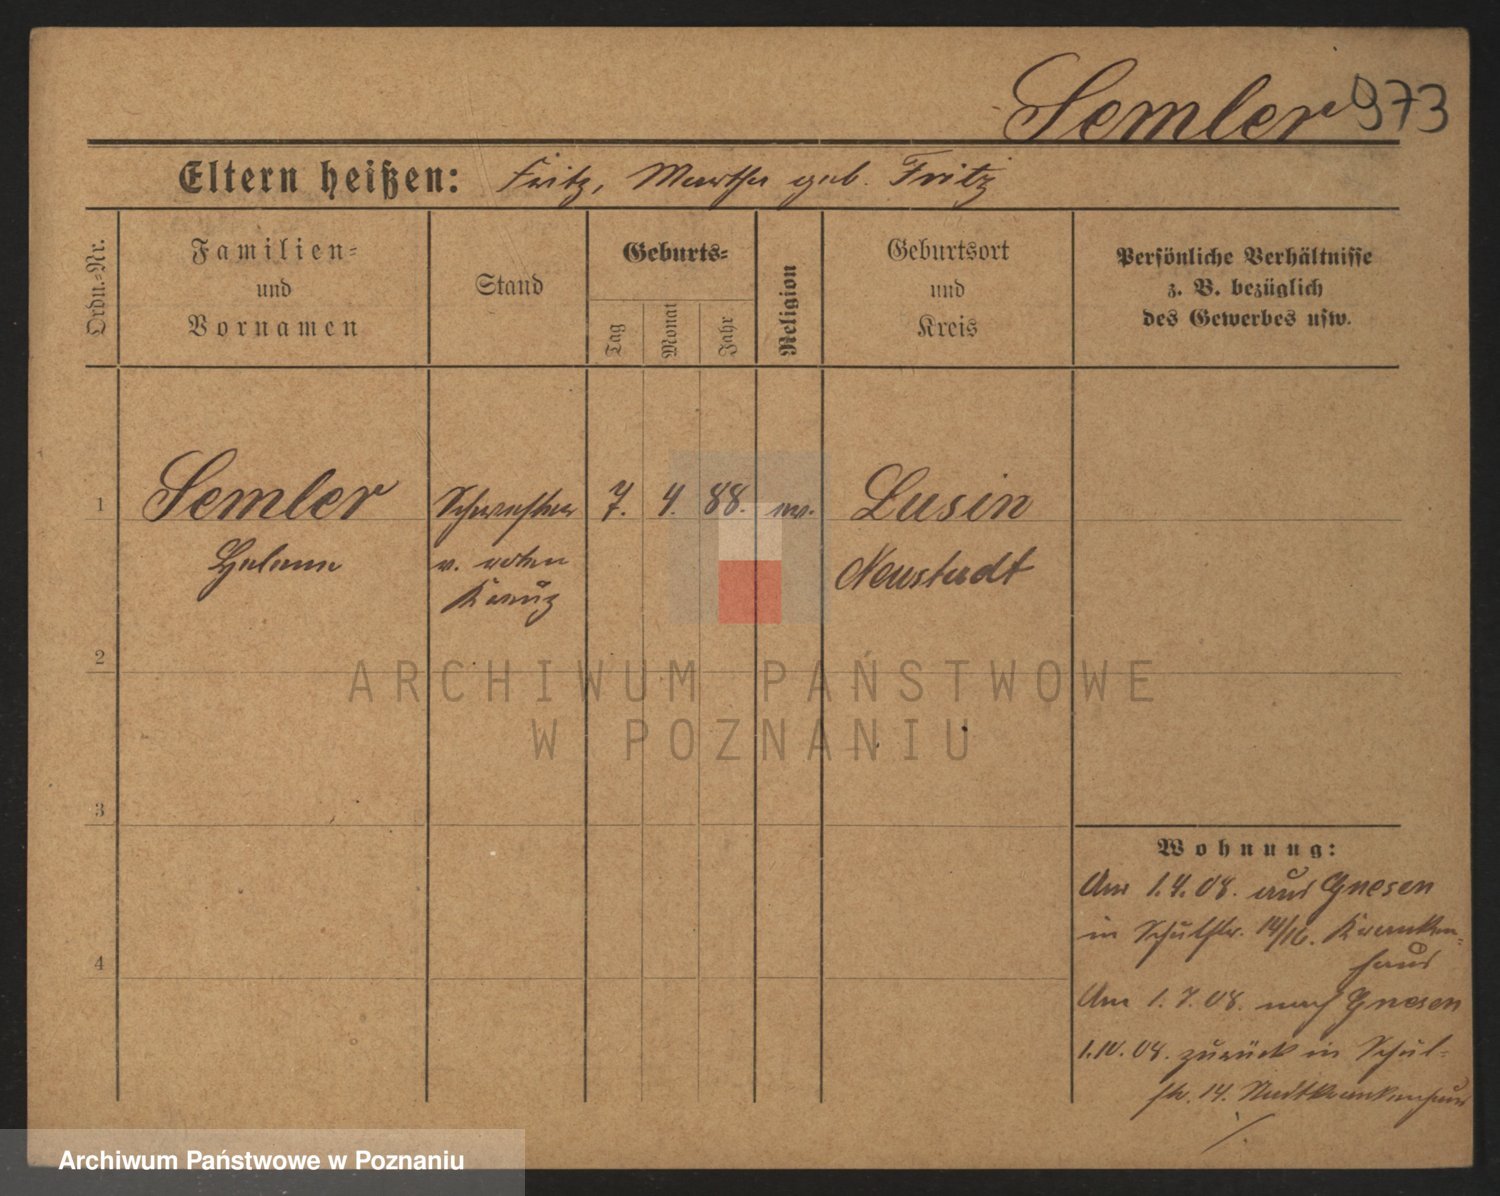 Semler 973
Eltern heißen: Fritz, Martha geb. Fritz
Ordn.-Nr.
Familien-
und
Vornamen
Stand
Geburts-
Tag
Monat
Jahr
Religion
Geburtsort
und
Kreis
Persönliche Verhältnisse
z. B. bezüglich
des Gewerbes usw.
1 Semler Schwester 7. 4. 88. ev. Lusin
Helene v. roten Neustadt
Kreuz
2
3
4
Wohnung:
Am 1.4.08. aus Gnesen
in Schulstr. 14/16. Kranken-
haus
Am 1.7.08. nach Gnesen
1.10.08. zurück in Schul-
str. 14. Stadtkrankenhaus
ARCHIWUM PAŃSTWOWE
W POZNANIU
Archiwum Państwowe w Poznaniu